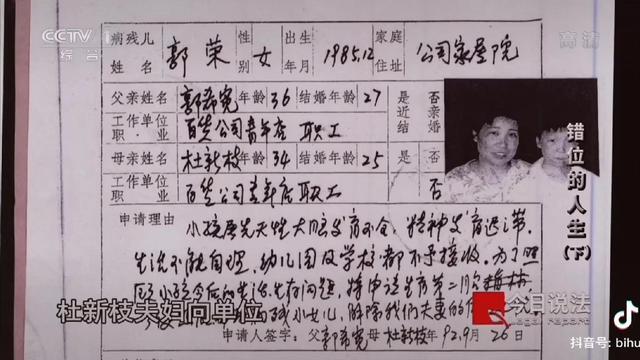 CCTV 1
综合
高清
病残儿姓名 郭荣 性别 女 出生年月 1985.12 家庭住址 公司家属院
父亲姓名 郭希宽 年龄 36 结婚年龄 27 是否近亲结婚
工作单位职·业 百货公司青年店 职工
母亲姓名 杜新枝 年龄 34 结婚年龄 25 是 否
工作单位职·业 百货公司青年店 职工 否
申请理由
小孩属先天性大脑发育不全,精神发育迟滞,
生活不能自理,幼儿园及学校都不予接收。为了照
顾小孩今后的生活、生存问题,特申请生育第二个
杜新枝夫妇向单位
申请人签字:父 郭希宽 母 杜新枝 年 92.9月26日
错位的人生(下)
今日说法
Legal report
抖音号: bihu